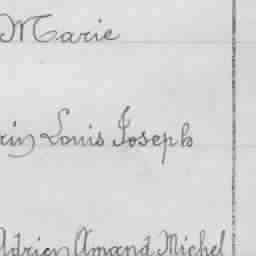 Marie
Louis Joseph
Adrien Amand Michel